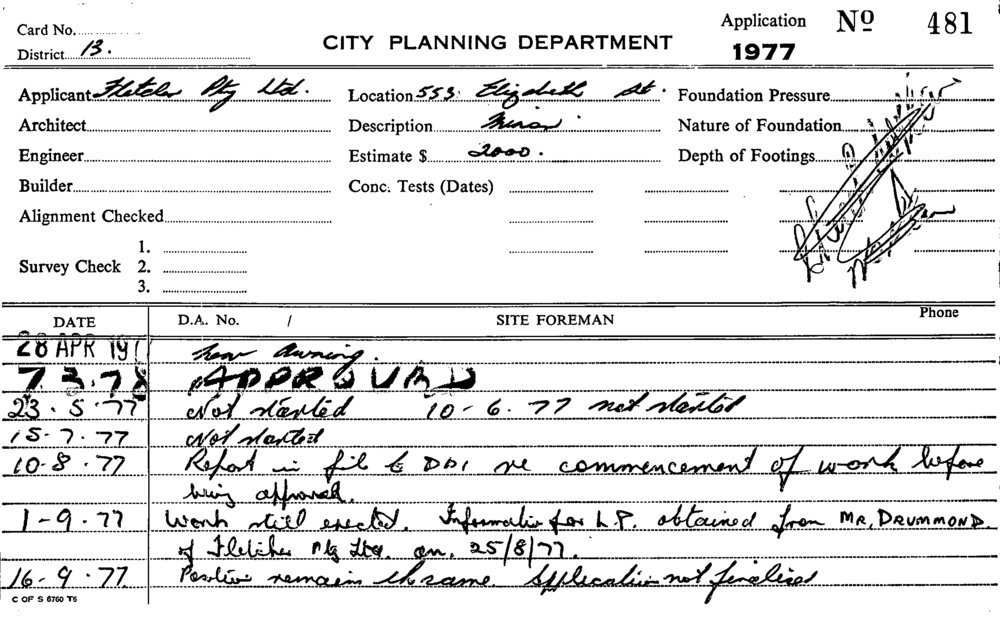 Card No.
District B.
CITY PLANNING DEPARTMENT
Application Nº 481
1977
Applicant Fletcher Pty Ltd. Location 553 Elizabeth St. Foundation Pressure
Architect Description Minor Nature of Foundation
Engineer Estimate $ 2000. Depth of Footings
Builder Conc. Tests (Dates)
Alignment Checked
Survey Check 1.
2.
3.
DATE D.A. No. / SITE FOREMAN Phone
28 APR 197 new Awning.
7 3.78 APPROVED
23.5.77 Not started 10-6.77 not started
15-7.77 Not started
10-8.77 Report in file to DBI re commencement of work before
being approved.
1-9.77 Work still erected. Information for L.P. obtained from MR, DRUMMOND
of Fletcher Pty Ltd. on, 25/8/77.
16-9.77 remain same. Application not finalised
C OF S 6760 T6